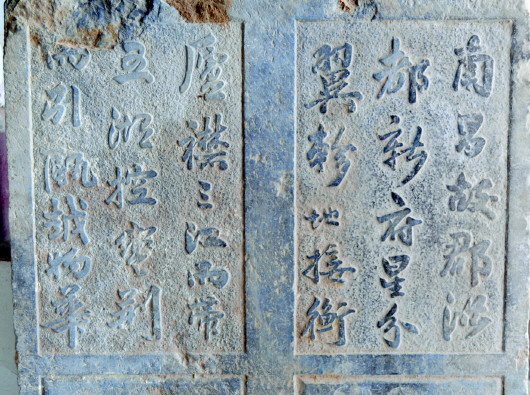 南昌故郡洪
都新府星分
翼軫地接衡
廬襟三江而帶
五湖控蠻荆
而引甌越物華